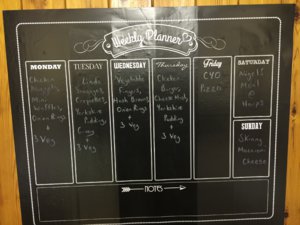 Weekly Planner
MONDAY
Chicken
Nuggets,
Mini
Waffles,
Onion Rings
+
3 Veg
TUESDAY
Linda
Sausages,
Croquettes,
Yorkshire
Pudding
+
3 Veg
WEDNESDAY
Vegetable
Fingers,
Hash Browns,
Onion Rings
+
3 Veg
Thursday
Chicken
Burger,
Yorkshire
Pudding
+
3 Veg
Friday
Pizza
SATURDAY
Meal
@
SUNDAY
Skinny
Macaroni
Cheese
NOTES